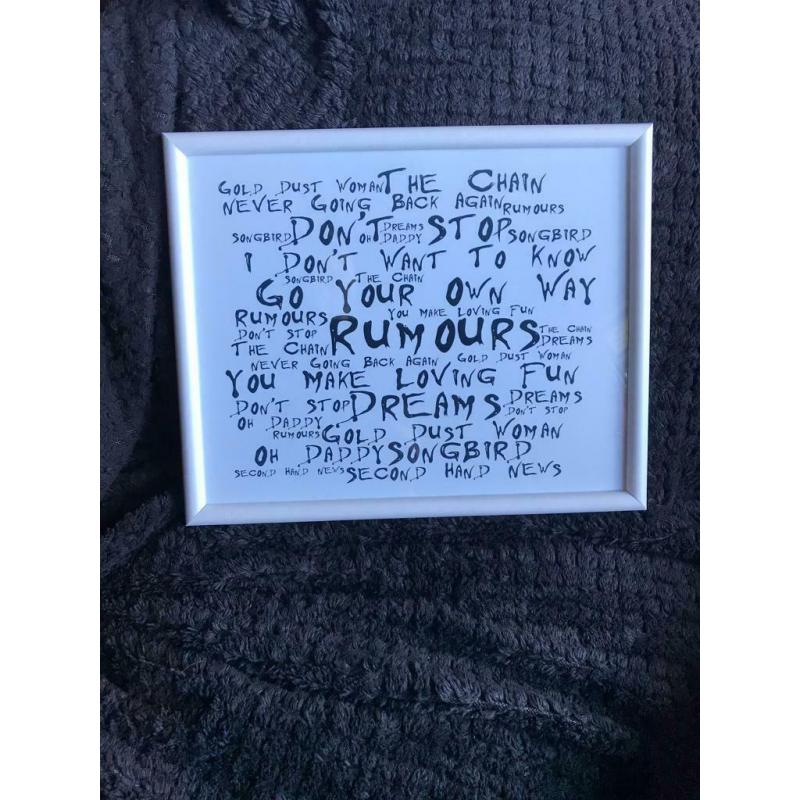 GOLD DUST WOMAN THE CHAIN
NEVER GOING BACK AGAIN RUMOURS
SONGBIRD DON'T DREAMS OH DADDY STOP SONGBIRD
I DON'T WANT TO KNOW
SONGBIRD THE CHAIN
GO YOUR OWN WAY
RUMOURS YOU MAKE LOVING FUN
DON'T STOP RUMOURS THE CHAIN
THE CHAIN DREAMS
NEVER GOING BACK AGAIN GOLD DUST WOMAN
YOU MAKE LOVING FUN
DON'T STOP DREAMS DREAMS
OH DADDY DON'T STOP
RUMOURS GOLD DUST WOMAN
OH DADDY SONGBIRD
SECOND HAND NEWS SECOND HAND NEWS